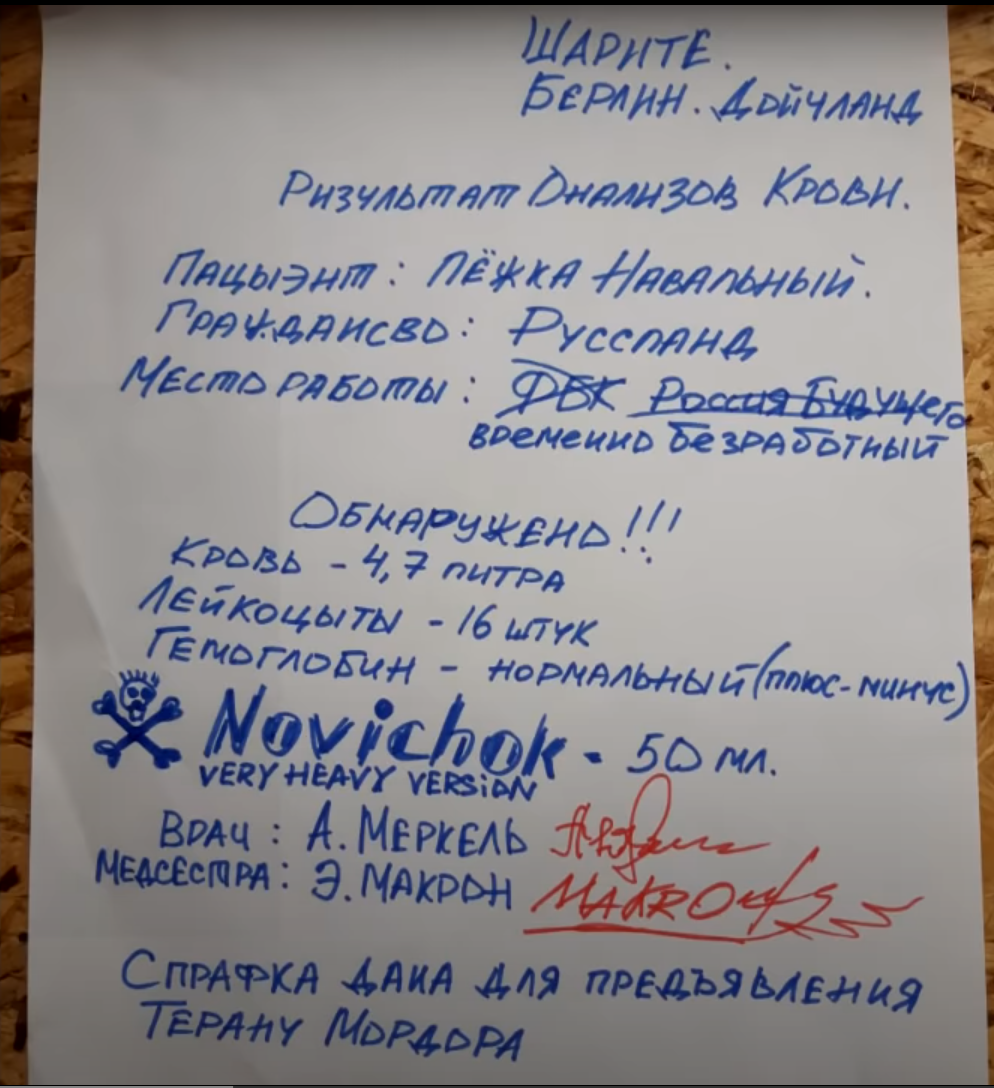 ШАРИТЕ.
БЕРЛИН. ДОЙЧЛАНД
РИЗУЛЬТАТ ОНАЛИЗОВ КРОВИ.
ПАЦЫЭНТ: ЛЁЖКА НАВАЛЬНЫЙ.
ГРАЖДАНСВО: РУССЛАНД
МЕСТО РАБОТЫ: ФБК РОССИЯ БУДУЩЕГО
ВРЕМЕННО БЕЗРАБОТНЫЙ
ОБНАРУЖЕНО!!!
КРОВЬ - 4,7 ЛИТРА
ЛЕЙКОЦЫТЫ - 16 ШТУК
ГЕМОГЛОБИН - НОРМАЛЬНЫЙ (ПЛЮС-МИНУС)
Novichok - 50 МЛ.
VERY HEAVY VERSION
ВРАЧ: А. МЕРКЕЛЬ
МЕДСЕСТРА: Э. МАКРОН MAKRO
СПРАФКА ДАНА ДЛЯ ПРЕДЪЯВЛЕНИЯ
ТЕРАНУ МОРДОРА